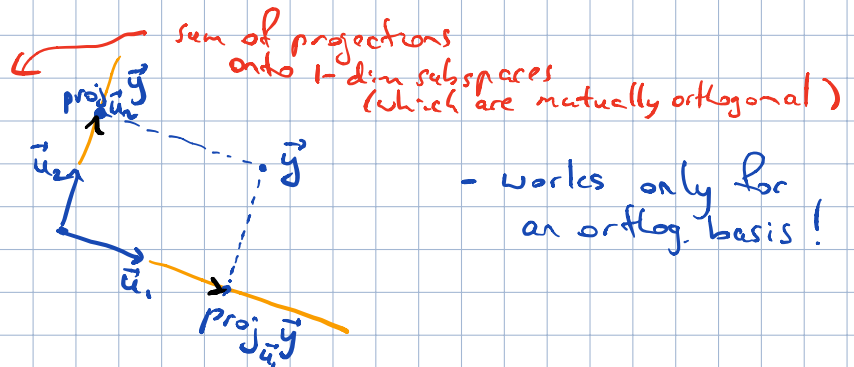 sum of projections
onto 1-dim subspaces
(which are mutually orthogonal)
proj_{\vec{u}_2} \vec{y}
\vec{u}_2
\vec{y}
- works only for
an orthog. basis!
\vec{u}_1
proj_{\vec{u}_1} \vec{y}